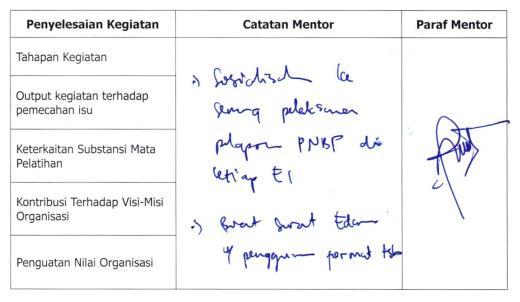 Penyelesaian Kegiatan
Catatan Mentor
Paraf Mentor
Tahapan Kegiatan
Output kegiatan terhadap
pemecahan isu
Keterkaitan Substansi Mata
Pelatihan
Kontribusi Terhadap Visi-Misi
Organisasi
Penguatan Nilai Organisasi
ke
pelaksanaan
PNBP di
setiap E1
Buat Surat Edaran
format tsb